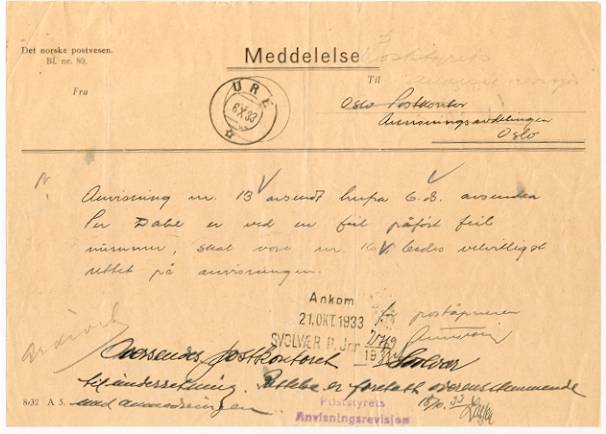 Det norske postvesen.
Bl. nr. 80.
Meddelelse
Poststyrets
Fra
Til
URE
6 X 33
Oslo Postkontor
Anvisningsavdelingen
Oslo
Anvisning nr. 13 avsendt herfra 6. ds. avsender
Per Dahl er ved en feil påført feil
nummer, skal være nr. 16, bedes velvilligst
rettet på anvisningen.
Ankom
21. OKT. 1933
SVOLVÆR P. Jnr
for poståpneren
Oversendes postkontoret Svolvær
til underretning. Rettelse er foretatt overensstemmende
med anmodningen.
Poststyrets
Anvisningsrevisjon
8/32 A 5.